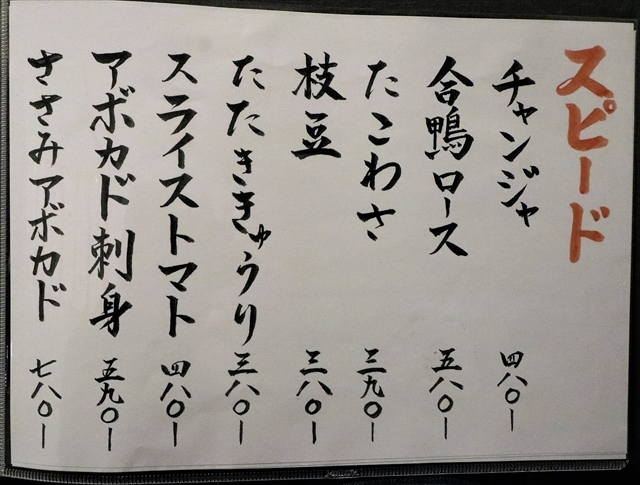 スピード
チャンジャ 四八〇ー
合鴨ロース 五八〇ー
たこわさ 三九〇ー
枝豆 三八〇ー
たたききゅうり 三八〇ー
スライストマト 四八〇ー
アボカド刺身 五九〇ー
ささみアボカド 七八〇ー